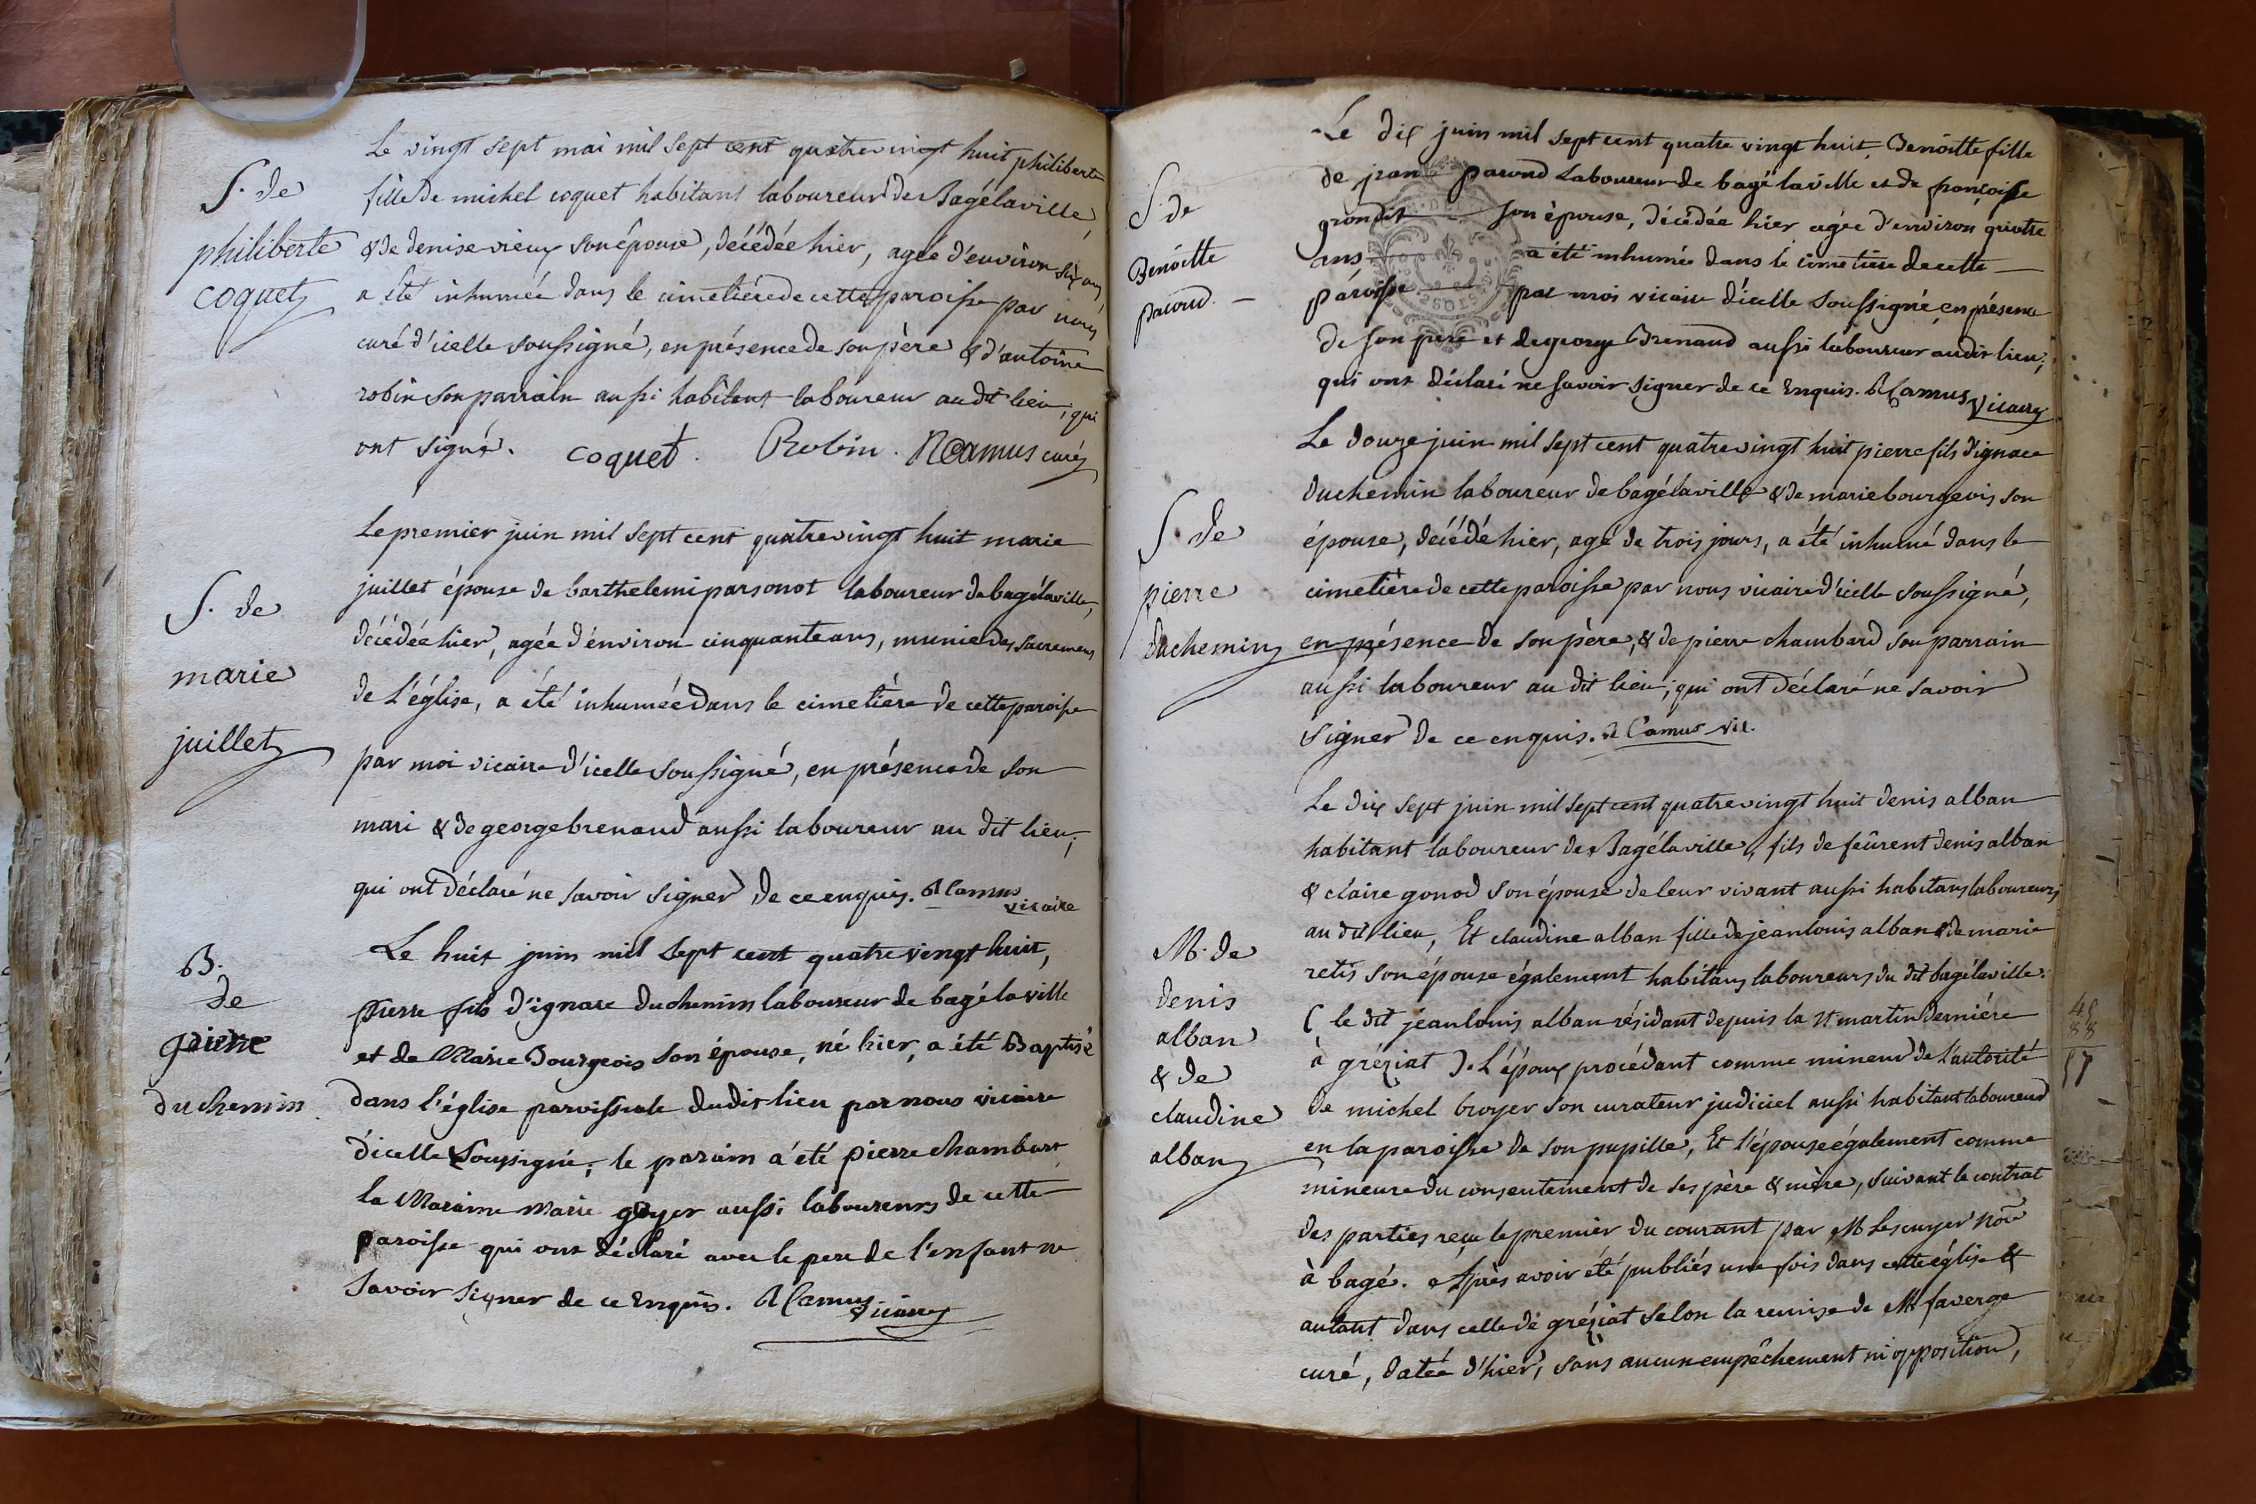 Le vingt sept mai mil sept cent quatrevingt huit philiberte
S. de
fille de michel coquet habitant laboureur de Bagélaville,
philiberte
& de denise vieux son épouse, décédée hier, agée d'environ six ans
coquet
a été inhumée dans le cimetière de cette paroisse par nous
curé d'icelle soussigné, en présence de son père & d'antoine
robin son parrain aussi habitant laboureur au dit lieu, qui
ont signé. coquet. Robin. Camus curé
Le premier juin mil sept cent quatrevingt huit marie
juillet épouse de barthelemi parsonot laboureur de bagélaville,
S. de
décédée hier, agée d'environ cinquante ans, munie des sacremens
marie
de l'église, a été inhumée dans le cimetière de cette paroisse
juillet
par moi vicaire d'icelle soussigné, en présence de son
mari & de george brenaud aussi laboureur au dit lieu,
qui ont déclaré ne savoir signer de ce enquis. Camus
vicaire
Le huit juin mil sept cent quatre vingt huit,
B.
de
pierre fils d'ignace duchemin laboureur de bagé la ville
pierre
et de Marie Bourgeois son épouse, né hier, a été Baptisé
duchemin
dans l'église paroissiale dudit lieu par nous vicaire
d'icelle soussigné; le parain a été pierre chambart
la Maraine marie goyer aussi laboureurs de cette
paroisse qui ont déclaré avec le pere de l'enfant ne
savoir signer de ce Enquis. Camus
vicaire
Le dix juin mil sept cent quatre vingt huit, Benoitte fille
S. de
de jean pacoud laboureur de bagé laville et de françoise
Benoitte
grondit son épouse, décédée hier agée d'environ quatre
pacoud
ans a été inhumée dans le cimetiere de cette
paroisse par moi vicaire d'icelle soussigné, en présence
de son pere et de george Brenaud aussi laboureur audit lieu,
qui ont déclaré ne savoir signer de ce Enquis. Camus vicaire
Le douze juin mil sept cent quatrevingt huit pierre fils d'ignace
duchemin laboureur de bagélaville & de marie bourgeois son
S. de
épouse, décédé hier, agé de trois jours, a été inhumé dans le
pierre
cimetière de cette paroisse par nous vicaire d'icelle soussigné,
duchemin
en présence de son père, & de pierre chambard son parrain
aussi laboureur au dit lieu, qui ont déclaré ne savoir
signer de ce enquis. Camus vic.
Le dix sept juin mil sept cent quatrevingt huit denis alban
habitant laboureur de Bagélaville, fils de feûrent denis alban
& claire gonod son épouse de leur vivant aussi habitans laboureurs
au dit lieu, Et claudine alban fille de jeanlouis alban & de marie
M. de
retis son épouse également habitans laboureurs du dit bagélaville:
denis
( le dit jeanlouis alban résidant depuis la St martin dernière
alban
à gréziat ). L'époux procédant comme mineur de l'autorité
& de
de michel broyer son curateur judiciel aussi habitant laboureur
claudine
en la paroisse de son pupille, Et l'épouse également comme
alban
mineure du consentement de ses père & mère, suivant le contrat
des parties reçu le premier du courant par M Lescuyer nore
à bagé. Après avoir été publiés une fois dans cette église &
autant dans celle de gréziat selon la remise de Mr faverge
curé, datée d'hier, sans aucun empêchement ni opposition,